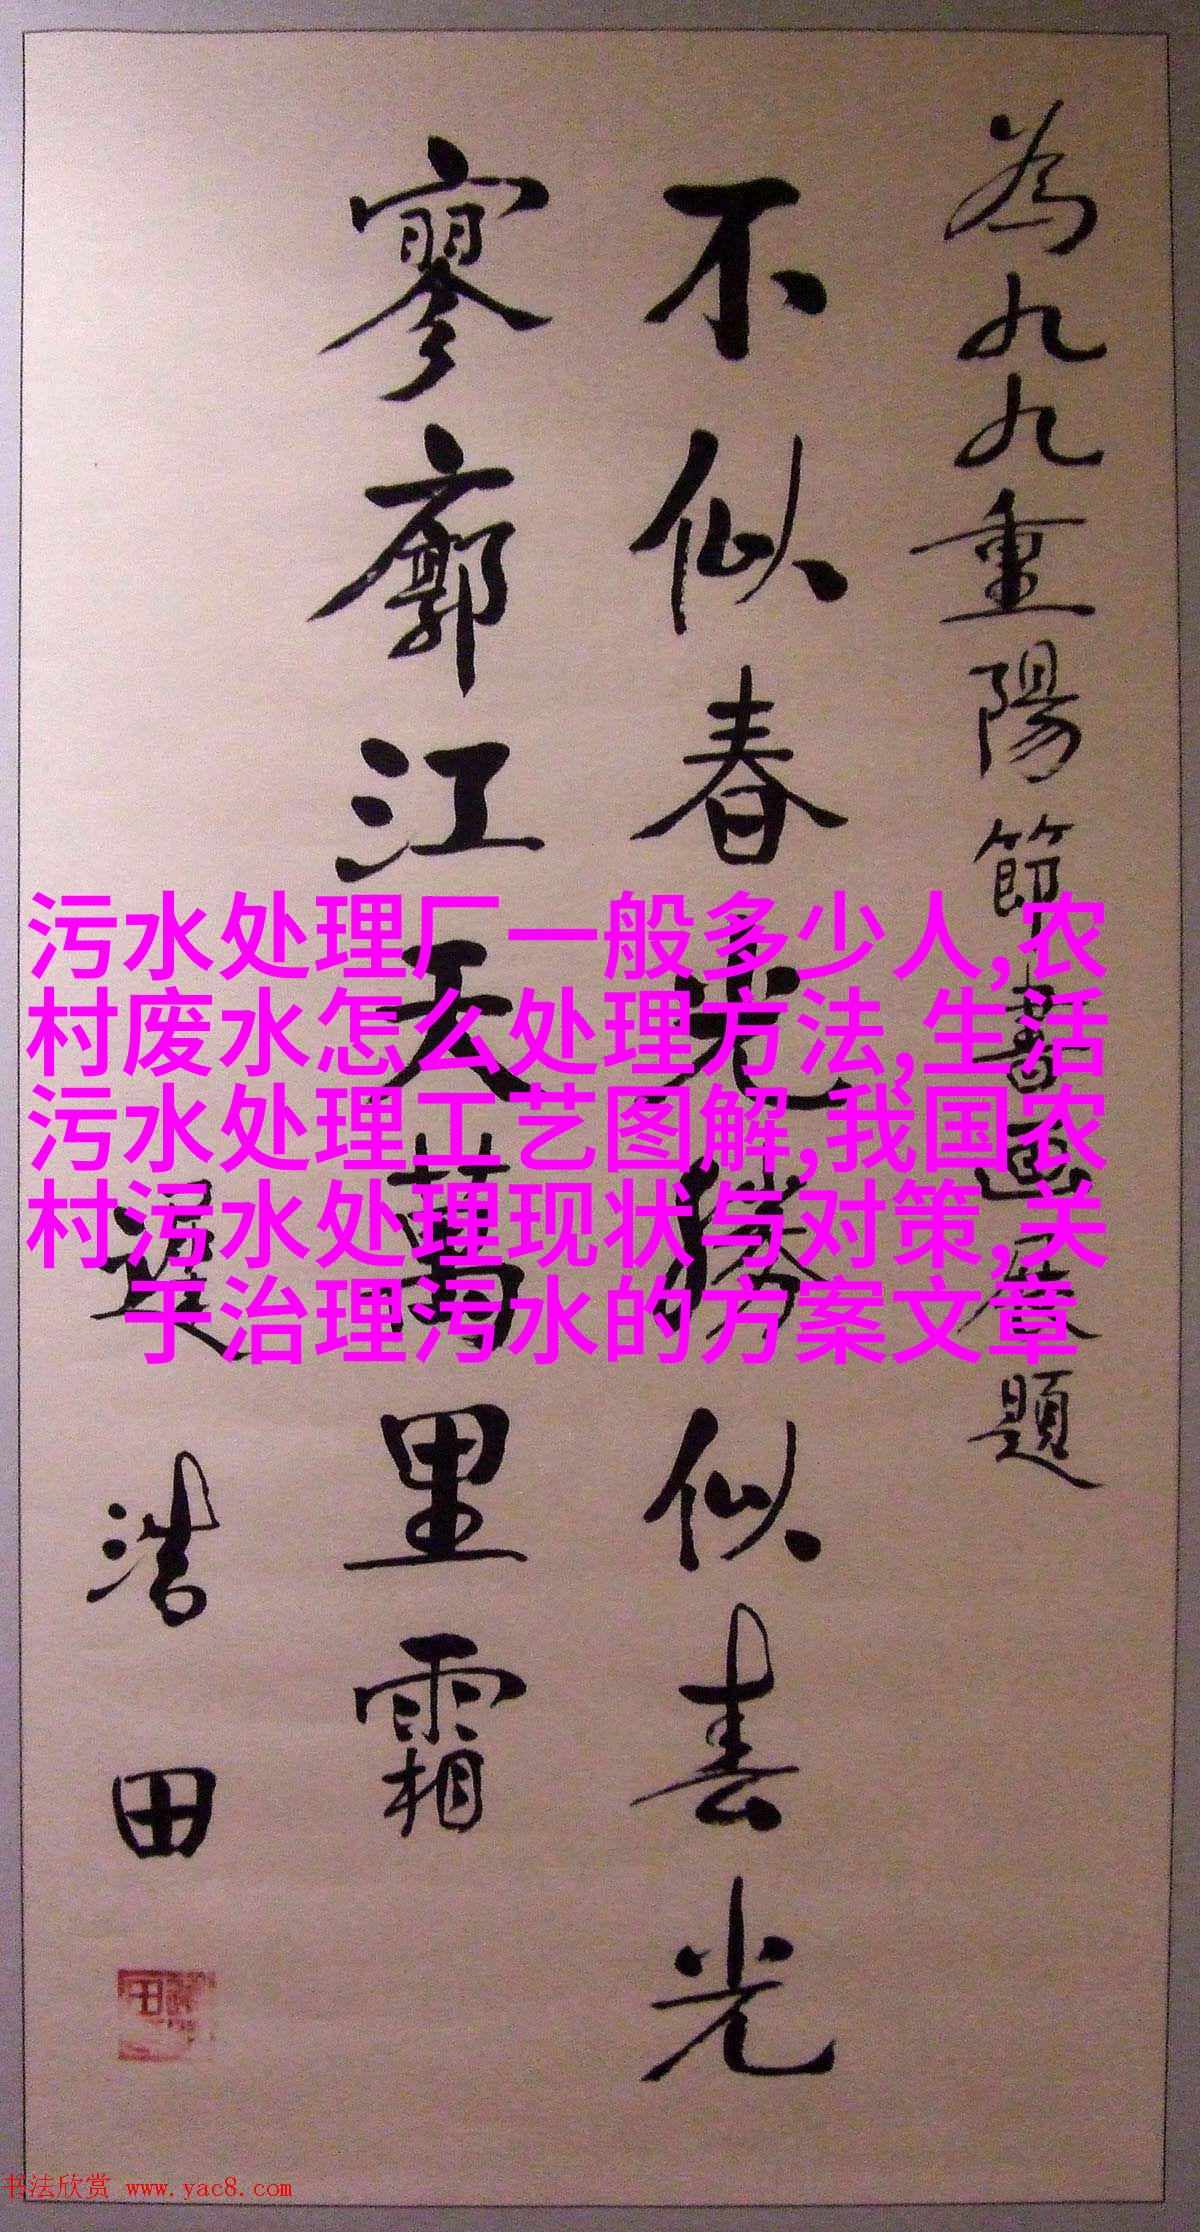 為九九重陽節書画展題
不似春光勝似春光
寥廓江天萬里霜
浩田
污水处理厂一般多少人,农
村废水怎么处理方法,生活
污水处理工艺图解,我国农
村污水处理现状与对策,关
于治理污水的方案文章
书法欣赏 www.yac8.com